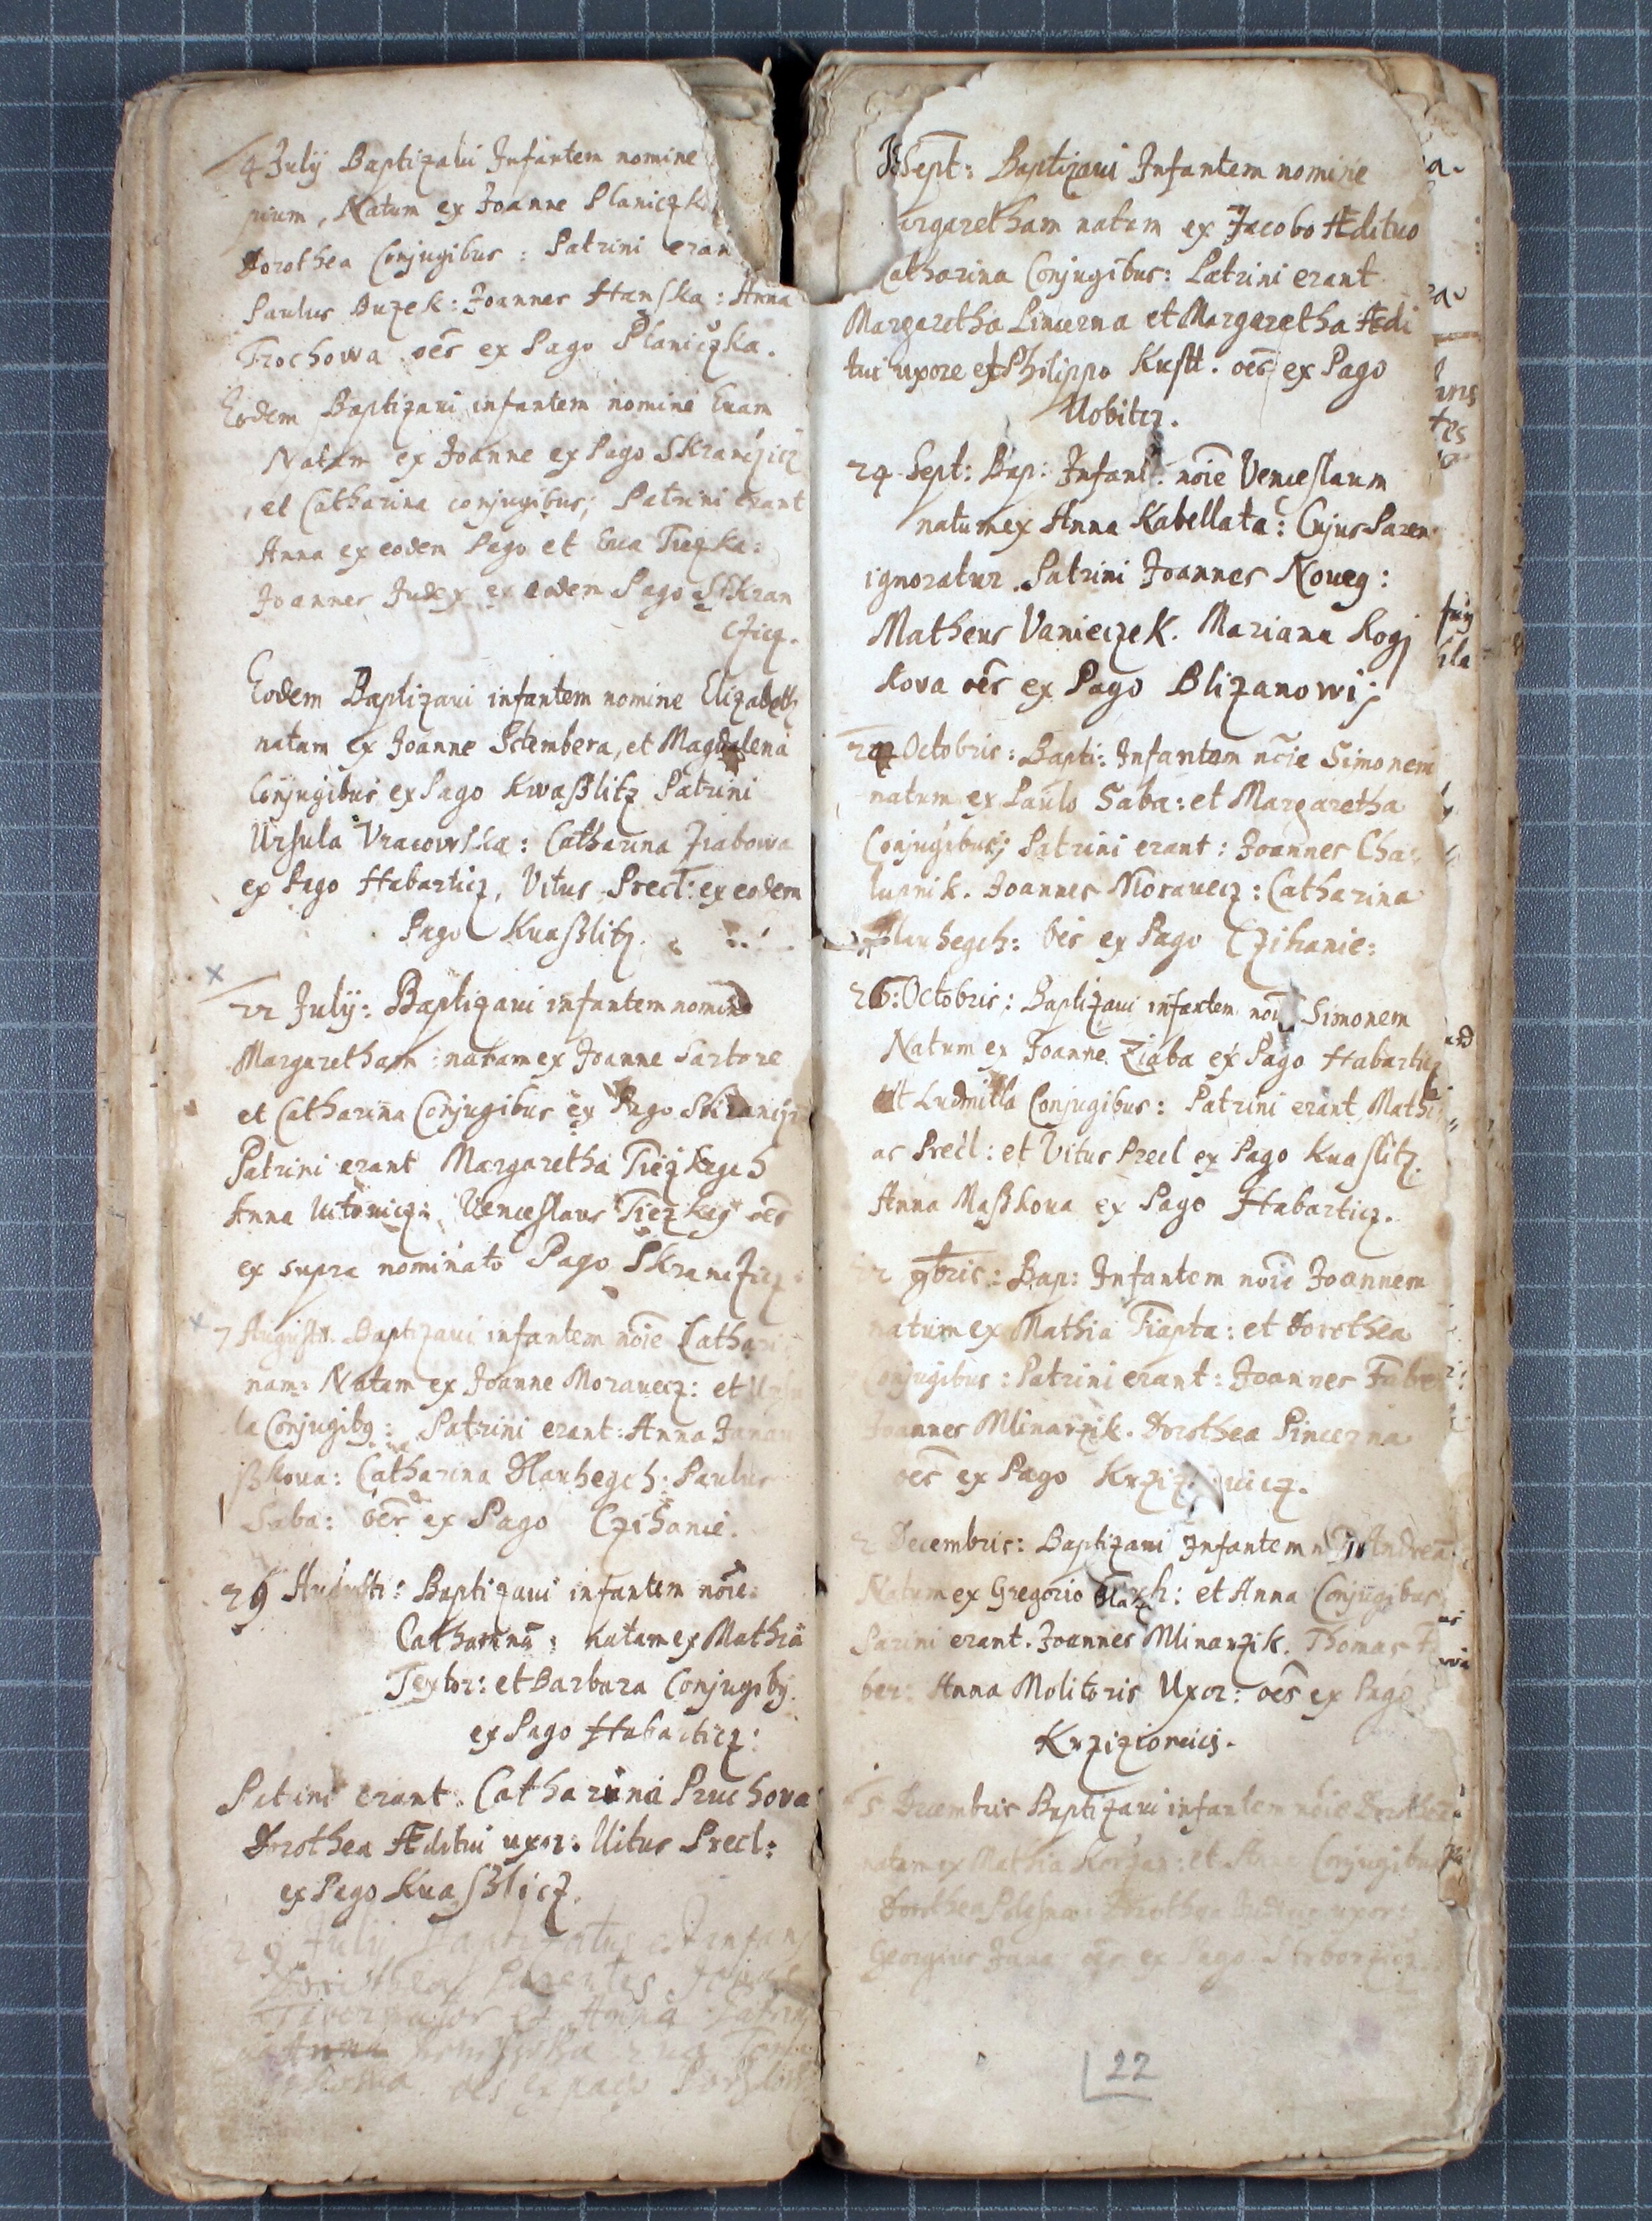 4 July Baptizavi Infantem nomine
rium, Natum ex Joanne Planiczk
Dorothea Conjugibus: Patrini eran
Paulus Buzek: Joannes Hanska: Anna
Trochowa. oēs ex Pago Planiczka.
Eodem Baptizavi infantem nomine Euam
Natam ex Joanne ex Pago Skranczicz
et Catharina conjugibus; Patrini erant
Anna ex eodem Pago et Eua Tiezka:
Joannes Judex ex eodem Pago Skran
czicz.
Eodem Baptizaui infantem nomine Elizabeth
natam ex Joanne Sctembera, et Magdalena
Conjugibus ex Pago Kwaßlitz Patrini
Ursula Vracowska: Catharina Ziabowa
ex Pago Habarticz, Vitus Precl: ex eodem
Pago Kuaßlitz.
22 July: Baptizaui infantem nomine
Margaretham: natam ex Joanne Sartore
et Catharina Conjugibus ex Pago
Patrini erant Margaretha Tiezkegch
Anna Venceslaus Tiezkeg oēs
ex supra nominato Pago Skranczicz
7 Augusti. Baptizaui infantem nōie Cathari
nam: Natam ex Joanne Morauecz: et Ursu
la Conjugibq: Patrini erant: Anna Janau
ßkoua: Catharina Dlauhegch: Paulus
Saba: oēs ex Pago Czihanie.
29 Augusti: Baptizaui infantem nōie:
Catharinā: natam ex Mathia
Textor: et Barbara Conjugibq.
ex Pago Habarticz:
Patini erant: Catharina Pruchova
Dorothea Æditui uxor: Uitus Precl:
ex Pago Kuaßlicz.
29 July Baptizatus e Infans
Parentes
et Anna
Anna
oes ex pago
Sept: Baptizaui Infantem nomine
argaretham natam ex Jacobo Ædituo
Catharina Conjugibus: Patrini erant
Margaretha Pincerna et Margaretha Ædi
tui uxore et Philippo Kustt. oēs ex Pago
Uobitcz.
24 Sept: Bap: Infant: nōie Venceslaum
natum ex Anna Kabellata: Cujus Paren
ignoratur. Patrini Joannes Noueg:
Matheus Vanieczek. Mariana Rogj
kova oēs ex Pago Blizanowij
Octobris: Bapti: Infantem nōie Simonem
natum ex Paulo Saba: et Margaretha
Conjugibus; Patrini erant: Joannes Cha
lupnik. Joannes Morauecz: Catharina
Dlauhegch: oēs ex Pago Czihanie:
26: Octobris: Baptizaui infantem nōie Simonem
Natum ex Joanne Ziaba ex Pago Habarticz
et Ludmilla Conjugibus: Patrini erant Mathi
as Precl: et Vitus Precl ex Pago Kuaslitz.
Anna Maßkoua ex Pago Habarticz.
22 9bris: Bap: Infantem nōie Joannem
natum ex Mathia Tiapta: et Dorothea
Conjugibus: Patrini erant: Joannes Faber
Joannes Mlinarzik. Dorothea Pincerna
oēs ex Pago
2 Decembris: Baptizaui Infantem Andreā
Natum ex Gregorio et Anna Conjugibus
Parini erant. Joannes Mlinarzik. Thomas Fa
ber: Anna Molitoris Uxor: oēs ex Pago
Krziziowicz.
5 Decembris Baptizaui infantem nōie Dorotheā
natam ex Mathia et Anna Conjugibus
Dorothea Dorothea Judicis uxor:
Georgius Jana oēs ex Pago
22